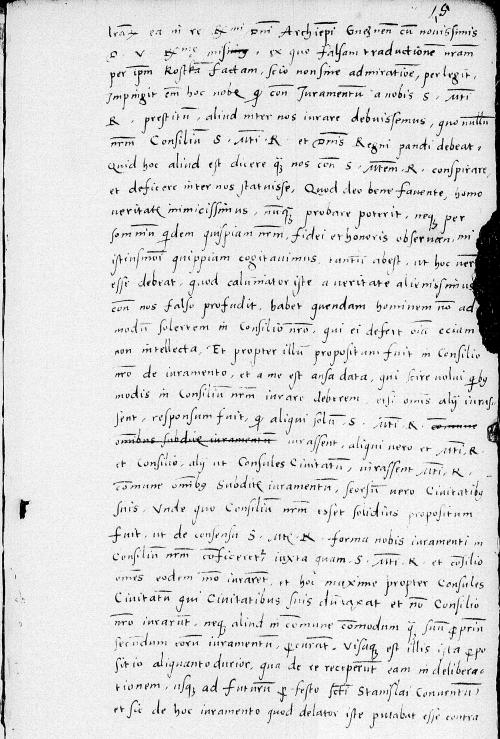 15
lrar̄ ea in re R̄mi Dn̄i Archiep̄i Gneznen̄ cū novissimis
D. V. R̄me misimus, ex quo falsam traductionē nram̄
per ip̄m Kostkā factam, scio non sine admiratiōe, perlegit,
Impingit em̄ hoc nobis q̄ con̄ Juramentū a nobis S. Mti
R. prestitū, aliud inter nos iurare debuissemus, quo nullū
nrm̄ Consiliū S. Mti. R. et Dn̄is Regni pandi debeat,
Quid hoc aliud est dicere q̄ȝ nos con̄ S. Mtem. R. conspirare
et deficere inter nos statuisse, Quod deo bene favente, homo
veritatis inimicissimus, nūq̄ȝ probare poterit, neqȝ per
somniū q̄dem quispiam nrm̄, fidei et honoris observan̄,
istiusmodi quippiam cogitavimus, tantū abest, ut hoc verū
esse debeat, quod calumniator iste a veritate alienissimus
con̄ nos falso profudit, habet quendam hominem nō ad
modū solertem in Consilio nr̄o, qui ei defert oīa eciam
non intellecta, Et propter illū propositum fuit in Consilio
nr̄o de iuramento, et a me est ansa data, qui scire volui q̄bȝ
modis in Consiliū nrm̄ iurare deberem, etsi omēs alij iuras
sent, responsum fuit, q̄ aliqui solū S. Mti. R. comune
omībus subditis iuramentū iurassent, aliqui vero et Mti. R.
et Consilio, alij ut Consules Civitatū, iurassent Mti. R.
comune omībȝ Subditis iuramentū, seorsū vero Civitatibȝ
suis, Unde quo Consiliū nrm̄ esset solidius propositum
fuit, ut de consensu S. Mtis. R. forma nobis iuramenti in
Consiliū nrm̄ cōficeret̄ iuxta quam. S. Mti. R. et cōsilio
omēs eodem mō iurarēt, et hoc maxime propter Consules
Civitatū qui Civitatibus suis dūtaxat et nō Consilio
nr̄o iurarūt, neqȝ aliud in comune cōmodum q̄ȝ suū p̄priū
secundum eorū iuramentū, p̄curāt. Visaqȝ est illis ista p̄po
sitio aliquanto durior, qua de re receperūt eam in delibera=
tionem, usqȝ ad futurū p̄ festo scti Stanislai Conventū,
et sic de hoc iuramento quod delator iste putabat esse contra